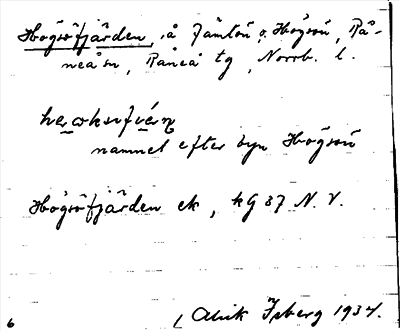 Högsöfjärden, å Jämtön o. Högsön, Rå-
neå sn, Råneå tg, Norrb. l.
namnet efter byn Högsön
Högsöfjärden ek, kG 37 N. V.
Alrik Isberg 1934.
6